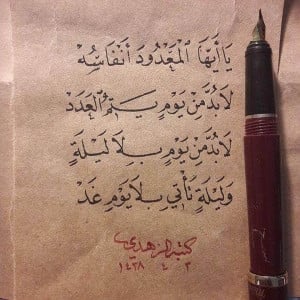 يَا أَيُّهَا الْمَعْدُودَ أَنْفَاسُهُ
لَابُدَّ مِنْ يَوْمٍ يَتِمُّ الْعَدَدْ
لَابُدَّ مِنْ يَوْمٍ بِلَا لَيْلَةٍ
وَلَيْلَةٍ تَأْتِي بِلَا يَوْمِ غَدْ
كتبه الزهدي
٣ ٤ ١٤٣٨